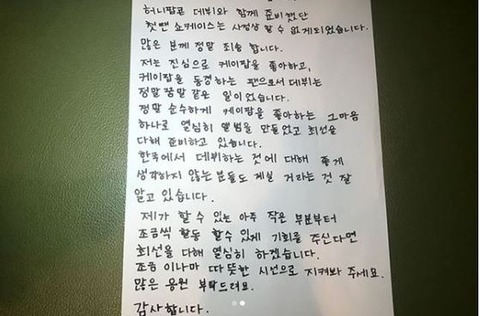 허니팝콘 데뷔와 함께 준비했던
첫번째 쇼케이스는 사정상 할 수 없게되었습니다.
많은 분께 정말 죄송 합니다.
저는 진심으로 케이팝을 좋아하고,
케이팝을 동경하는 팬으로서 데뷔는
정말 꿈만 같은 일이었습니다.
정말 순수하게 케이팝을 좋아하는 그마음
하나로 열심히 앨범을 만들었고 최선을
다해 준비하고 있습니다.
한국에서 데뷔하는 것에 대해 좋게
생각하지 않는 분들도 계실 거라는 것 잘
알고 있습니다.
제가 할 수 있는 아주 작은 부분부터
조금씩 활동 할수 있게 기회를 주신다면
최선을 다해 열심히 하겠습니다.
조금 이나마 따뜻한 시선으로 지켜봐 주세요.
많은 응원 부탁드려요.
감사합니다.